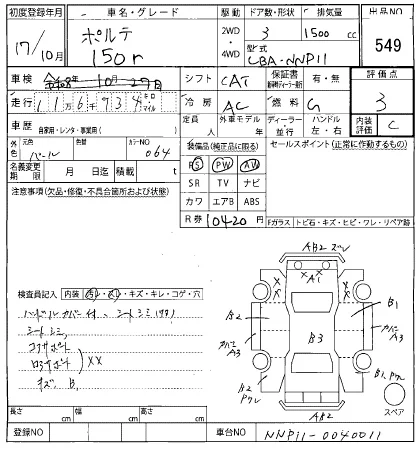 初度登録年月 車名・グレード 駆動 ドア数・形状 排気量 出品NO
17/10月 ポルテ 150r 2WD・4WD 3 1500cc 549
型式 CBA-NNP11
車検 令和8年10月27日 シフト CAT 保証書 有・無 評価点
走行 116934キロ・マイル 冷房 AC 燃料 G 3
車歴 自家用・レンタ・事業用( ) 定員 人 外車モデル 年 ディーラー・並行 ハンドル 左・右 内装評価 C
外色 元色 パール 色替 カラーNO 064 装備品(純正品に限る) セールスポイント(正常に作動するもの)
名義変更期限 月 日迄 積載量 t PS PW AW
注意事項(欠品・修復・不具合箇所および状態) SR TV ナビ
カワ エアB ABS
R券 10420円 Fガラス トビ石・キズ・ヒビ・ワレ・リペア跡
AB2 ズレ
A1
検査員記入 内装
・キズ・キレ・コゲ・穴
B2 B1
シートシミ
A3 B3 A3
××
キズ B1
B2 B1
AB2
スペア
長さ cm 幅 cm 高さ cm
登録NO 車台NO NNP11-0040011